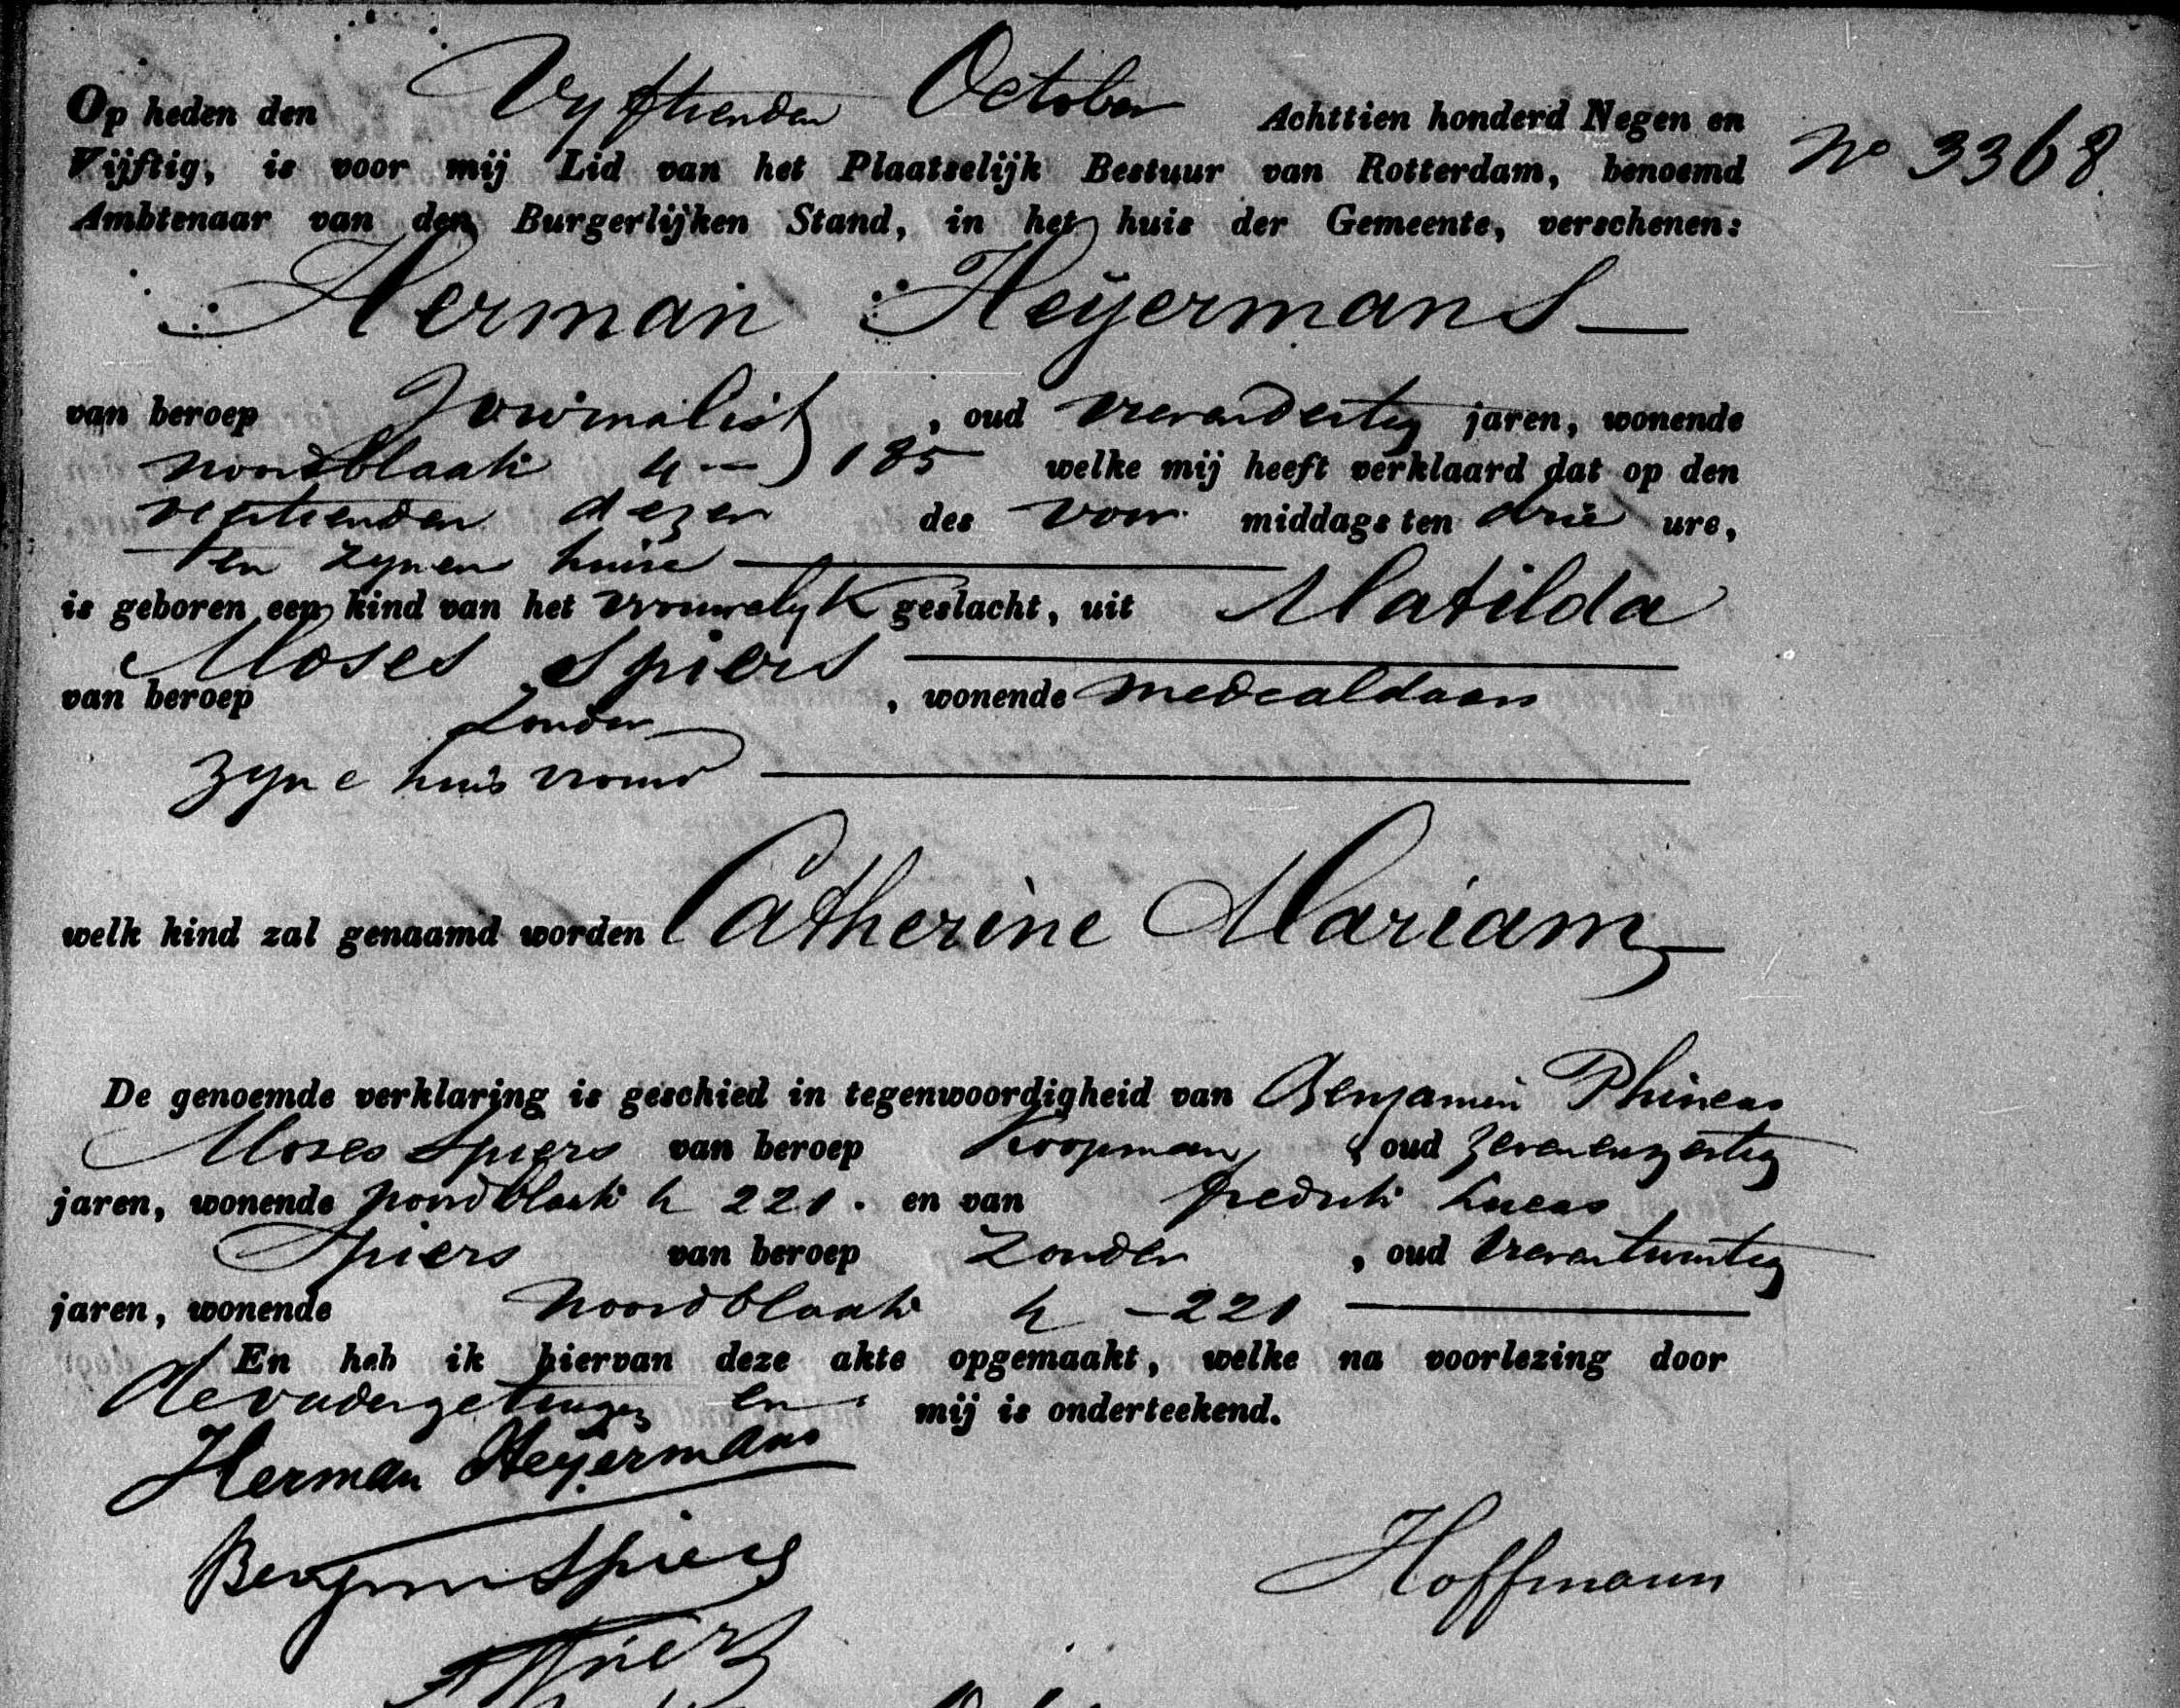 Op heden den Vyftienden October Achttien honderd Negen en
No 3368.
Vijftig, is voor mij Lid van het Plaatselijk Bestuur van Rotterdam, benoemd
Ambtenaar van den Burgerlijken Stand, in het huis der Gemeente, verschenen:
Herman Heÿermans
van beroep Journalist, oud vierendertig jaren, wonende
noordblaak 4 185 welke mij heeft verklaard dat op den
veertienden dezer des voor middags ten drie ure,
ten zynen huise
is geboren een kind van het vrouwelyk geslacht, uit Matilda
Moses Spiers
van beroep zonder, wonende mede aldaar
zyne huisvrouw
welk kind zal genaamd worden Catherine Mariam
De genoemde verklaring is geschied in tegenwoordigheid van Benjamin Phineas
Moses Spiers van beroep Koopman, oud zevenenzestig
jaren, wonende noordblaak 4 221. en van fredrik Lucas
Spiers van beroep zonder, oud vierentwintig
jaren, wonende noordblaak 4 - 221
En heb ik hiervan deze akte opgemaakt, welke na voorlezing door
de vader getuigen en mij is onderteekend.
Herman Heÿermans
Spiers
Hoffmann
Spiers